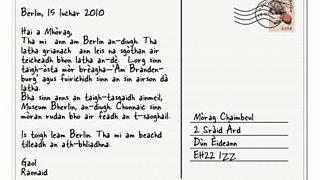 Berlin, 15 luchar 2010
Hai a Mhòrag,
Tha mi ann am Berlin an-diugh. Tha
latha grianach ann leis na sgòthan air
teicheadh bhon latha an-dè. Lorg sinn
taigh-òsta mòr brèagha-'Am Branden-
burg' agus fuirichidh sinn an sin airson dà
latha.
Bha sinn anns an taigh-tasgaidh ainmeil,
Museum Bherlin, an-diugh. Chunnaic sinn
mòran rudan bho air feadh an t-saoghail.
Is toigh leam Berlin. Tha mi am beachd
tilleadh an ath-bhliadhna.
Gaol
Raonaid
Mòrag Chaimbeul
2 Sràid Àrd
Dùn Èideann
EH22 1ZZ